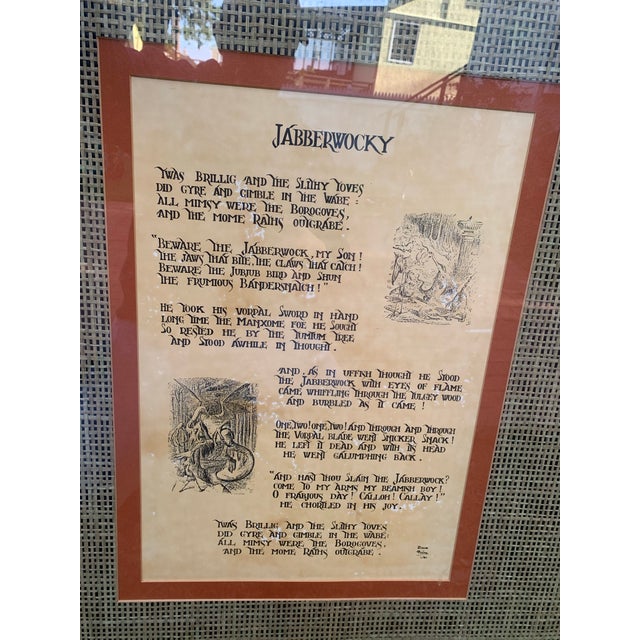 JABBERWOCKY
TWAS BRILLIG AND THE SLITHY TOVES
DID GYRE AND GIMBLE IN THE WABE:
ALL MIMSY WERE THE BOROGOVES,
AND THE MOME RATHS OUTGRABE.
"BEWARE THE JABBERWOCK, MY SON!
THE JAWS THAT BITE, THE CLAWS THAT CATCH!
BEWARE THE JUBJUB BIRD AND SHUN
THE FRUMIOUS BANDERSNATCH!"
HE TOOK HIS VORPAL SWORD IN HAND
LONG TIME THE MANXOME FOE HE SOUGHT
SO RESTED HE BY THE TUMTUM TREE
AND STOOD AWHILE IN THOUGHT.
AND, AS IN UFFISH THOUGHT HE STOOD
THE JABBERWOCK WITH EYES OF FLAME
CAME WHIFFLING THROUGH THE TULGEY WOOD
AND BURBLED AS IT CAME!
ONE, TWO! ONE, TWO! AND THROUGH AND THROUGH
THE VORPAL BLADE WENT SNICKER SNACK!
HE LEFT IT DEAD AND WITH ITS HEAD
HE WENT GALUMPHING BACK.
"AND HAST THOU SLAIN THE JABBERWOCK?
COME TO MY ARMS MY BEAMISH BOY!
O FRABJOUS DAY! CALLOH! CALLAY!"
HE CHORTLED IN HIS JOY.
TWAS BRILLIG AND THE SLITHY TOVES
DID GYRE AND GIMBLE IN THE WABE:
ALL MIMSY WERE THE BOROGOVES,
AND THE MOME RATHS OUTGRABE.